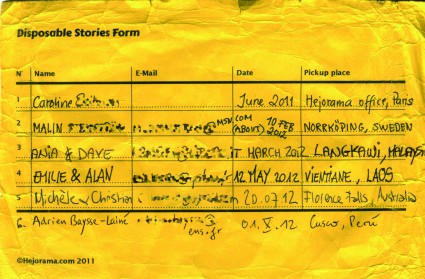 Disposable Stories Form
N° Name E-Mail Date Pickup place
1 Caroline June 2011 Hejorama office, Paris
2 MALIN MSN.COM (ABOUT) 10 FEB 2012 NORRKÖPING, SWEDEN
3 ANJA & DAVE MARCH 2012 LANGKAWI, MALAYSIA
4 EMILIE & ALAN 12 MAY 2012 VIENTIANE, LAOS
5 Michèle & Christian 20.07.12 Florence Falls, Australia
6. Adrien Baysse-Lainé ens.fr 01. X. 12 Cusco, Perú
©Hejorama.com 2011